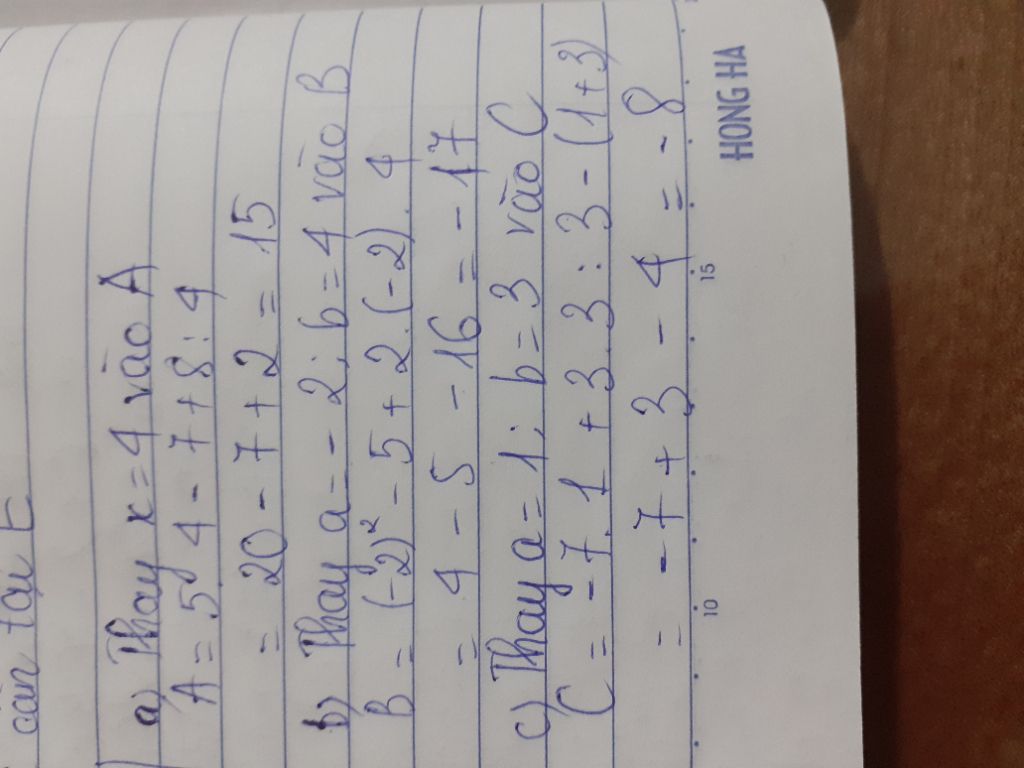 cân tại E
a) Thay x = 4 vào A
A = 5 . 4 - 7 + 8 : 4
= 20 - 7 + 2 = 15
b) Thay a = - 2 ; b = 4 vào B
B = (-2)² - 5 + 2 . (-2) . 4
= 4 - 5 - 16 = - 17
c) Thay a = 1 ; b = 3 vào C
C = - 7 . 1 + 3 . 3 : 3 - (1 + 3)
= - 7 + 3 - 4 = - 8
10 15
HONG HA